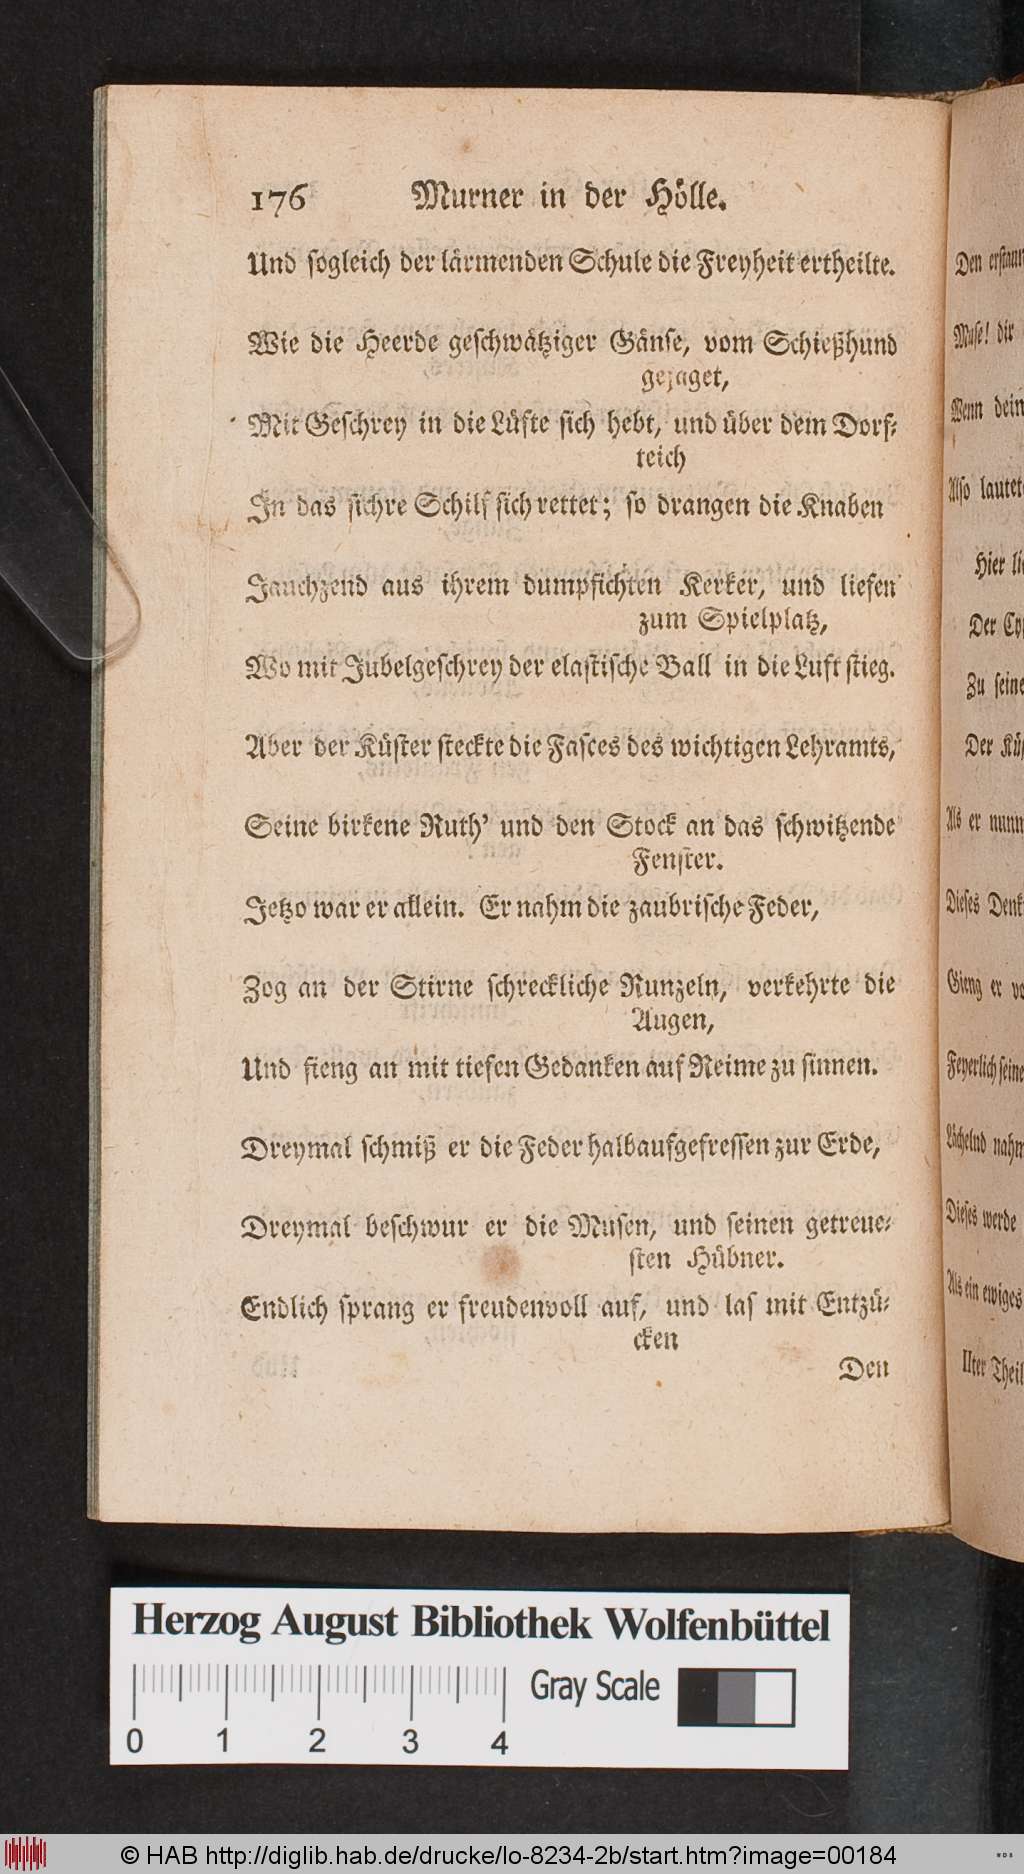 176 Murner in der Hölle.
Und sogleich der lärmenden Schule die Freyheit ertheilte.
Wie die Heerde geschwätziger Gänse, vom Schießhund
gejaget,
Mit Geschrey in die Lüfte sich hebt, und über dem Dorf-
teich
In das sichre Schilf sich rettet; so drangen die Knaben
Jauchzend aus ihrem dumpfichten Kerker, und liefen
zum Spielplatz,
Wo mit Jubelgeschrey der elastische Ball in die Luft stieg.
Aber der Küster steckte die Fasces des wichtigen Lehramts,
Seine birkene Ruth' und den Stock an das schwitzende
Fenster.
Jetzo war er allein. Er nahm die zaubrische Feder,
Zog an der Stirne schreckliche Runzeln, verkehrte die
Augen,
Und fieng an mit tiefen Gedanken auf Reime zu sinnen.
Dreymal schmiß er die Feder halbaufgefressen zur Erde,
Dreymal beschwur er die Musen, und seinen getreue-
sten Hübner.
Endlich sprang er freudenvoll auf, und las mit Entzü-
cken
Den
Den
Muse! dir
Wenn dein
Also
Hier
Der
Zu seine
Der
Als er
Dieses
Gieng er
Feyerlich seine
Lächelnd nahm
Dieses werde
Als ein ewiges
IIter Theil
Herzog August Bibliothek Wolfenbüttel
Gray Scale
0 1 2 3 4
© HAB http://diglib.hab.de/drucke/lo-8234-2b/start.htm?image=00184